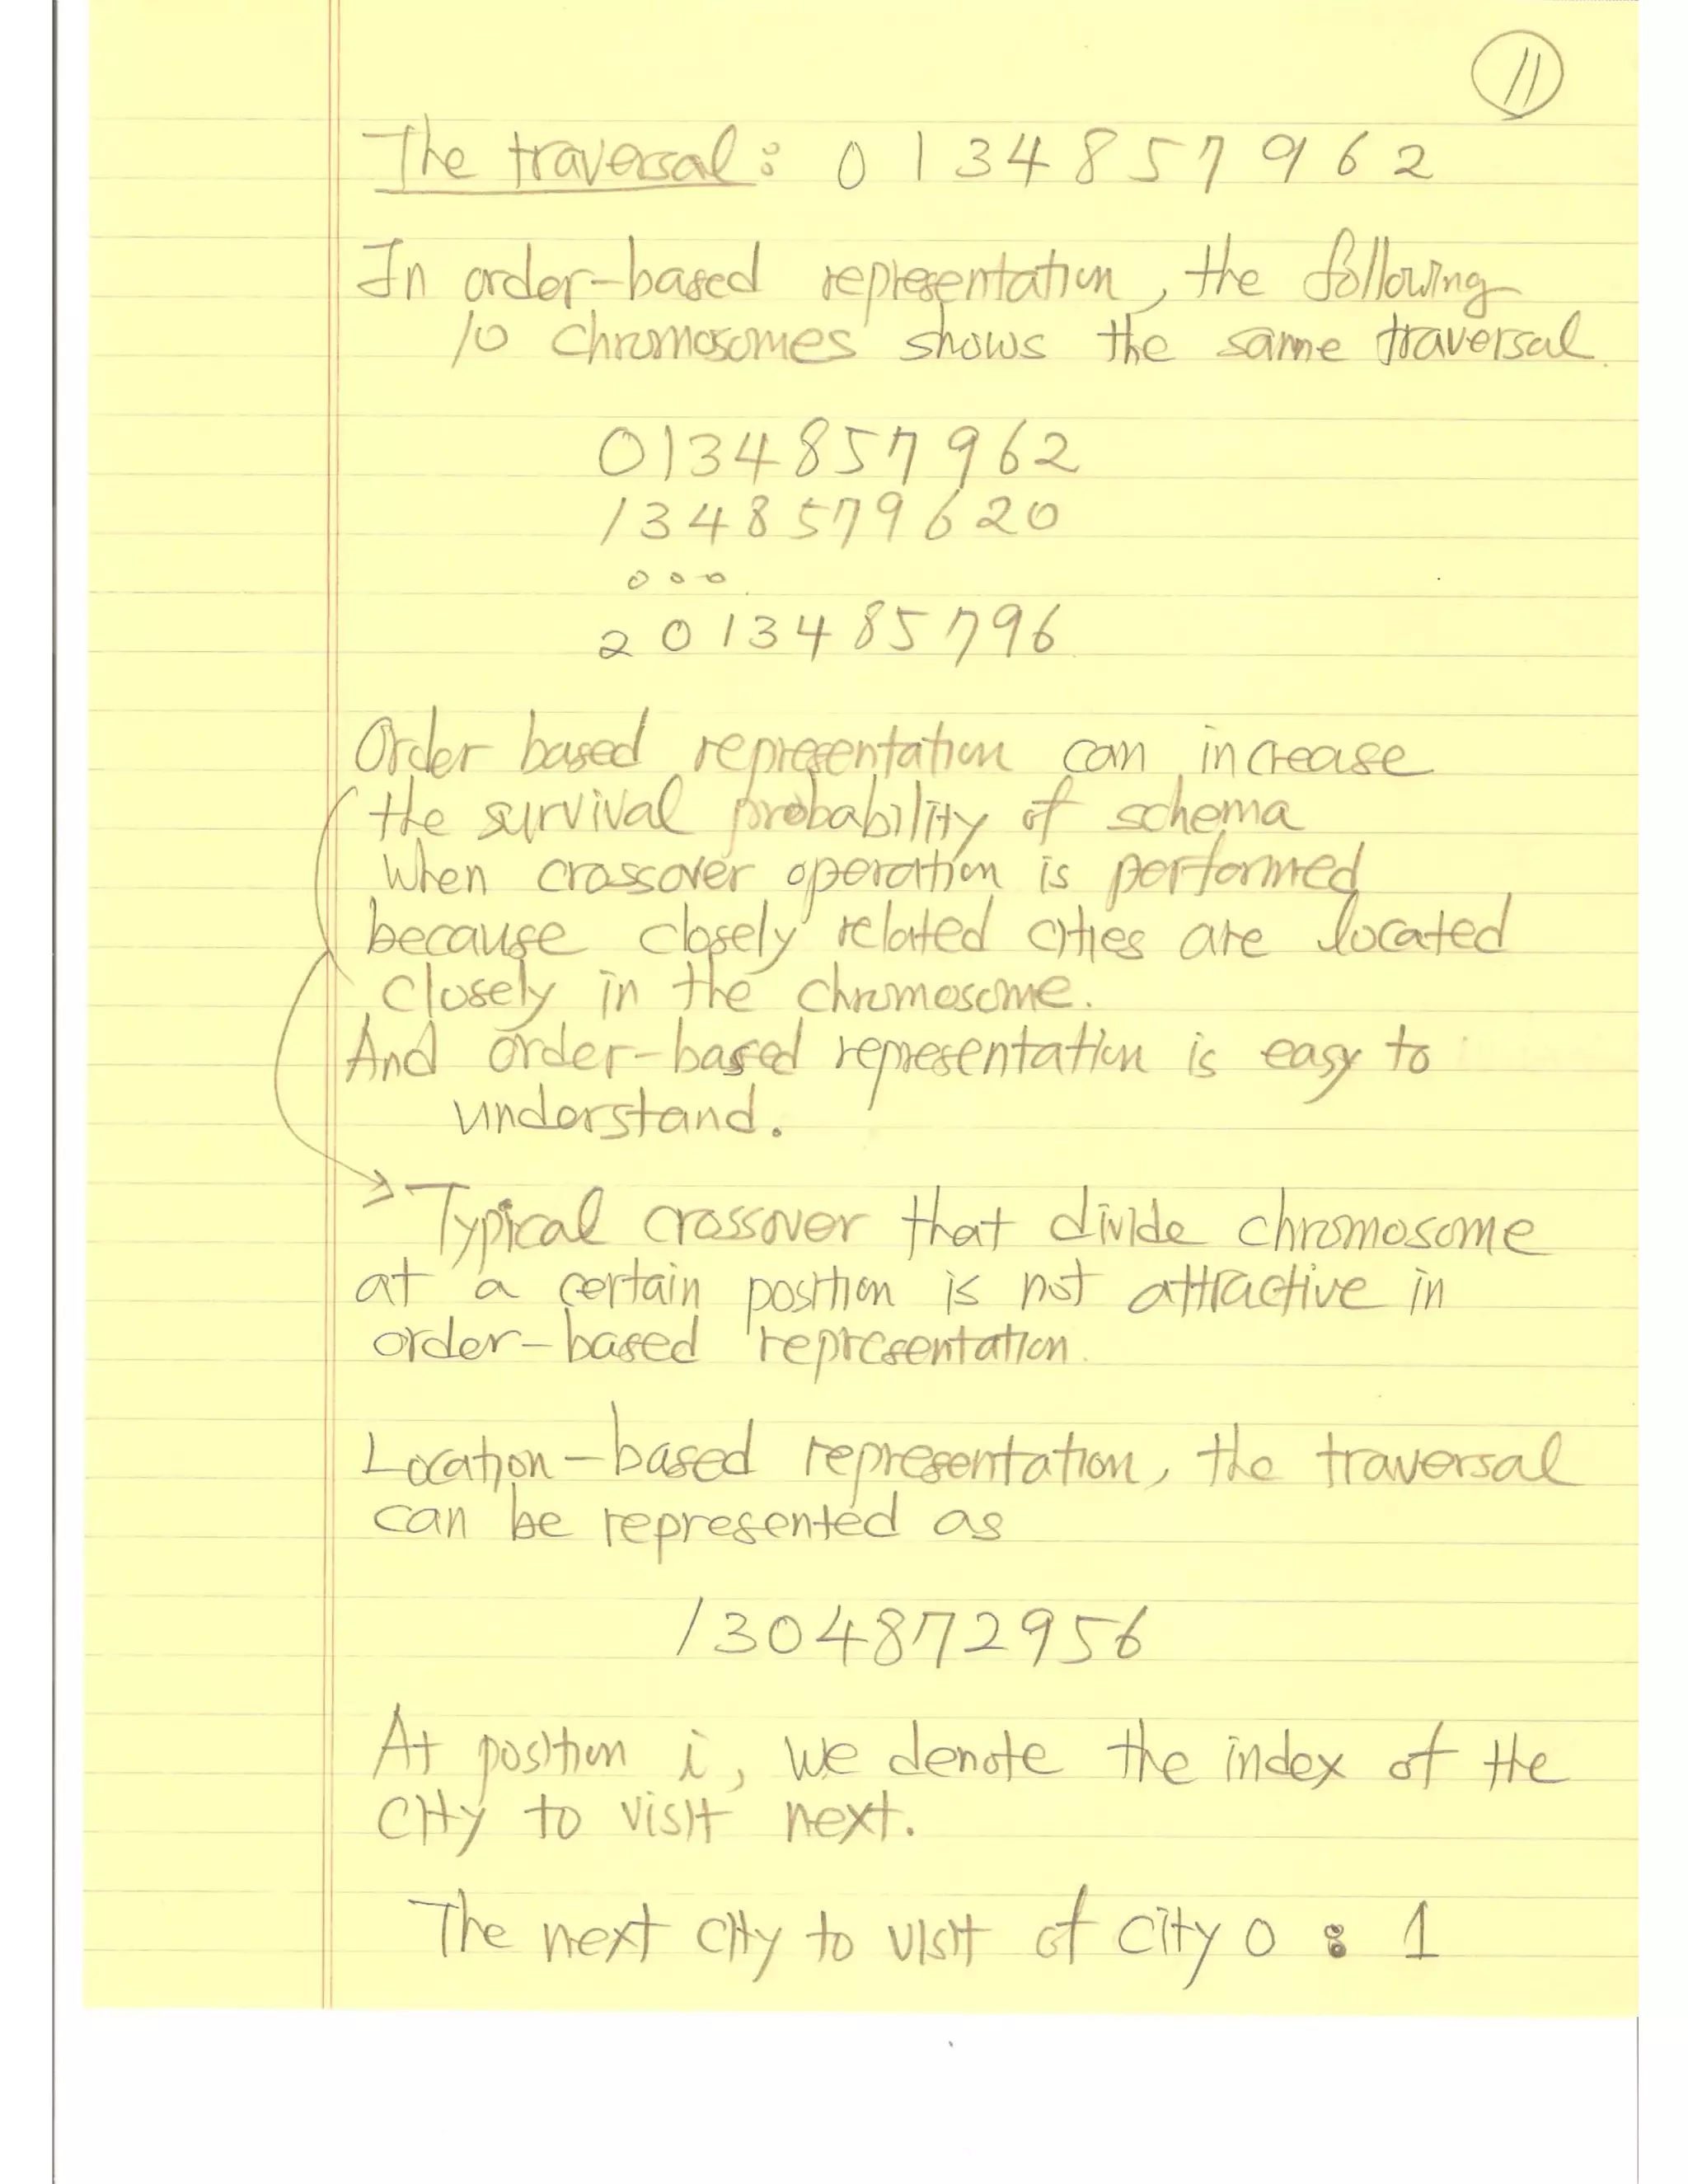 11
The traversal: 0 1 3 4 8 5 7 9 6 2
In order-based representation, the following
10 chromosomes shows the same traversal.
0134857962
1348579620
ooo
2013485796
Order based representation can increase
the survival probability of schema
when crossover operation is performed
because closely related cities are located
closely in the chromosome.
And order-based representation is easy to
understand.
→ Typical crossover that divide chromosome
at a certain position is not attractive in
order-based representation.
Location-based representation, the traversal
can be represented as
1304872956
At position i, we denote the index of the
city to visit next.
The next city to visit of city 0 : 1